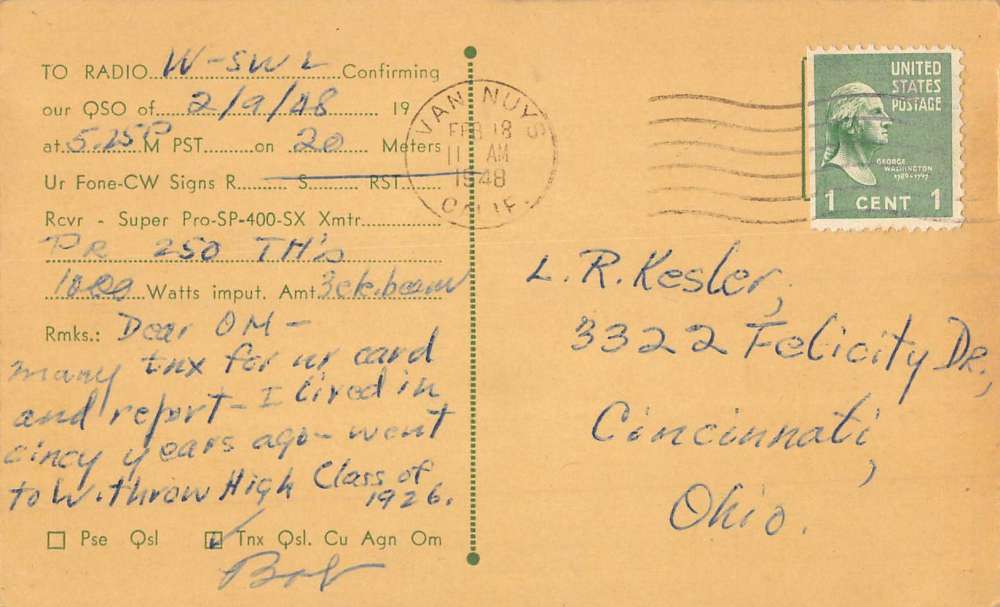 TO RADIO W-SWL Confirming
our QSO of 2/9/48 19
at 5.25P M PST on 20 Meters
Ur Fone-CW Signs R S RST
Rcvr - Super Pro-SP-400-SX Xmtr
PR 250 TH's
1000 Watts imput. Amt 3 el. beam
Rmks.: Dear OM -
many tnx for ur card
and report - I lived in
cincy years ago - went
to Withrow High Class of
1926.
Pse Qsl Tnx Qsl. Cu Agn Om
Bob
VAN NUYS
FEB 18
11 AM
1948
CALIF.
UNITED
STATES
POSTAGE
GEORGE
WASHINGTON
1789-1797
1 CENT 1
L. R. Kesler,
3322 Felicity Dr.,
Cincinnati,
Ohio.